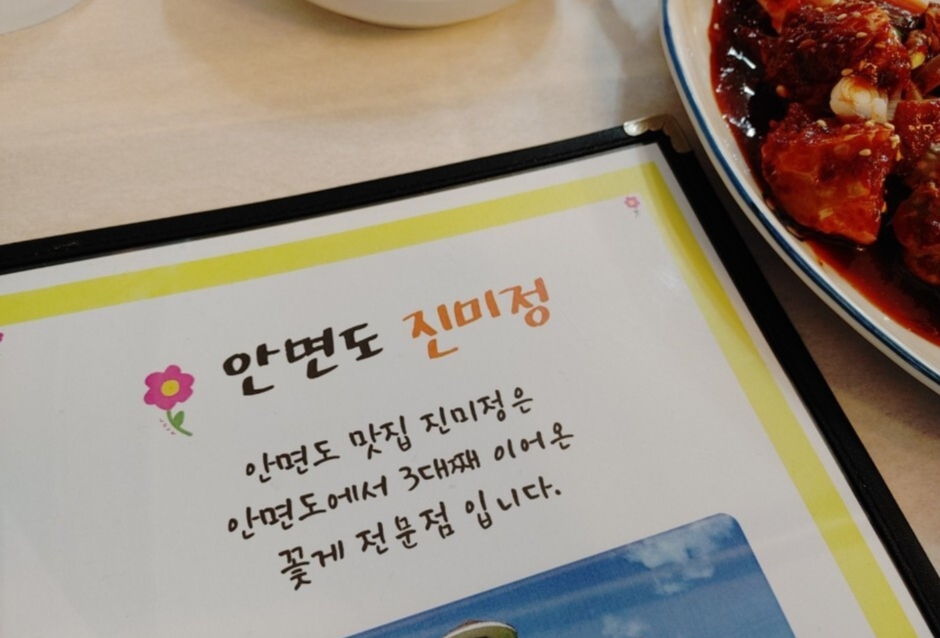 안면도 진미정
안면도 맛집 진미정은
안면도에서 3대째 이어온
꽃게 전문점 입니다.